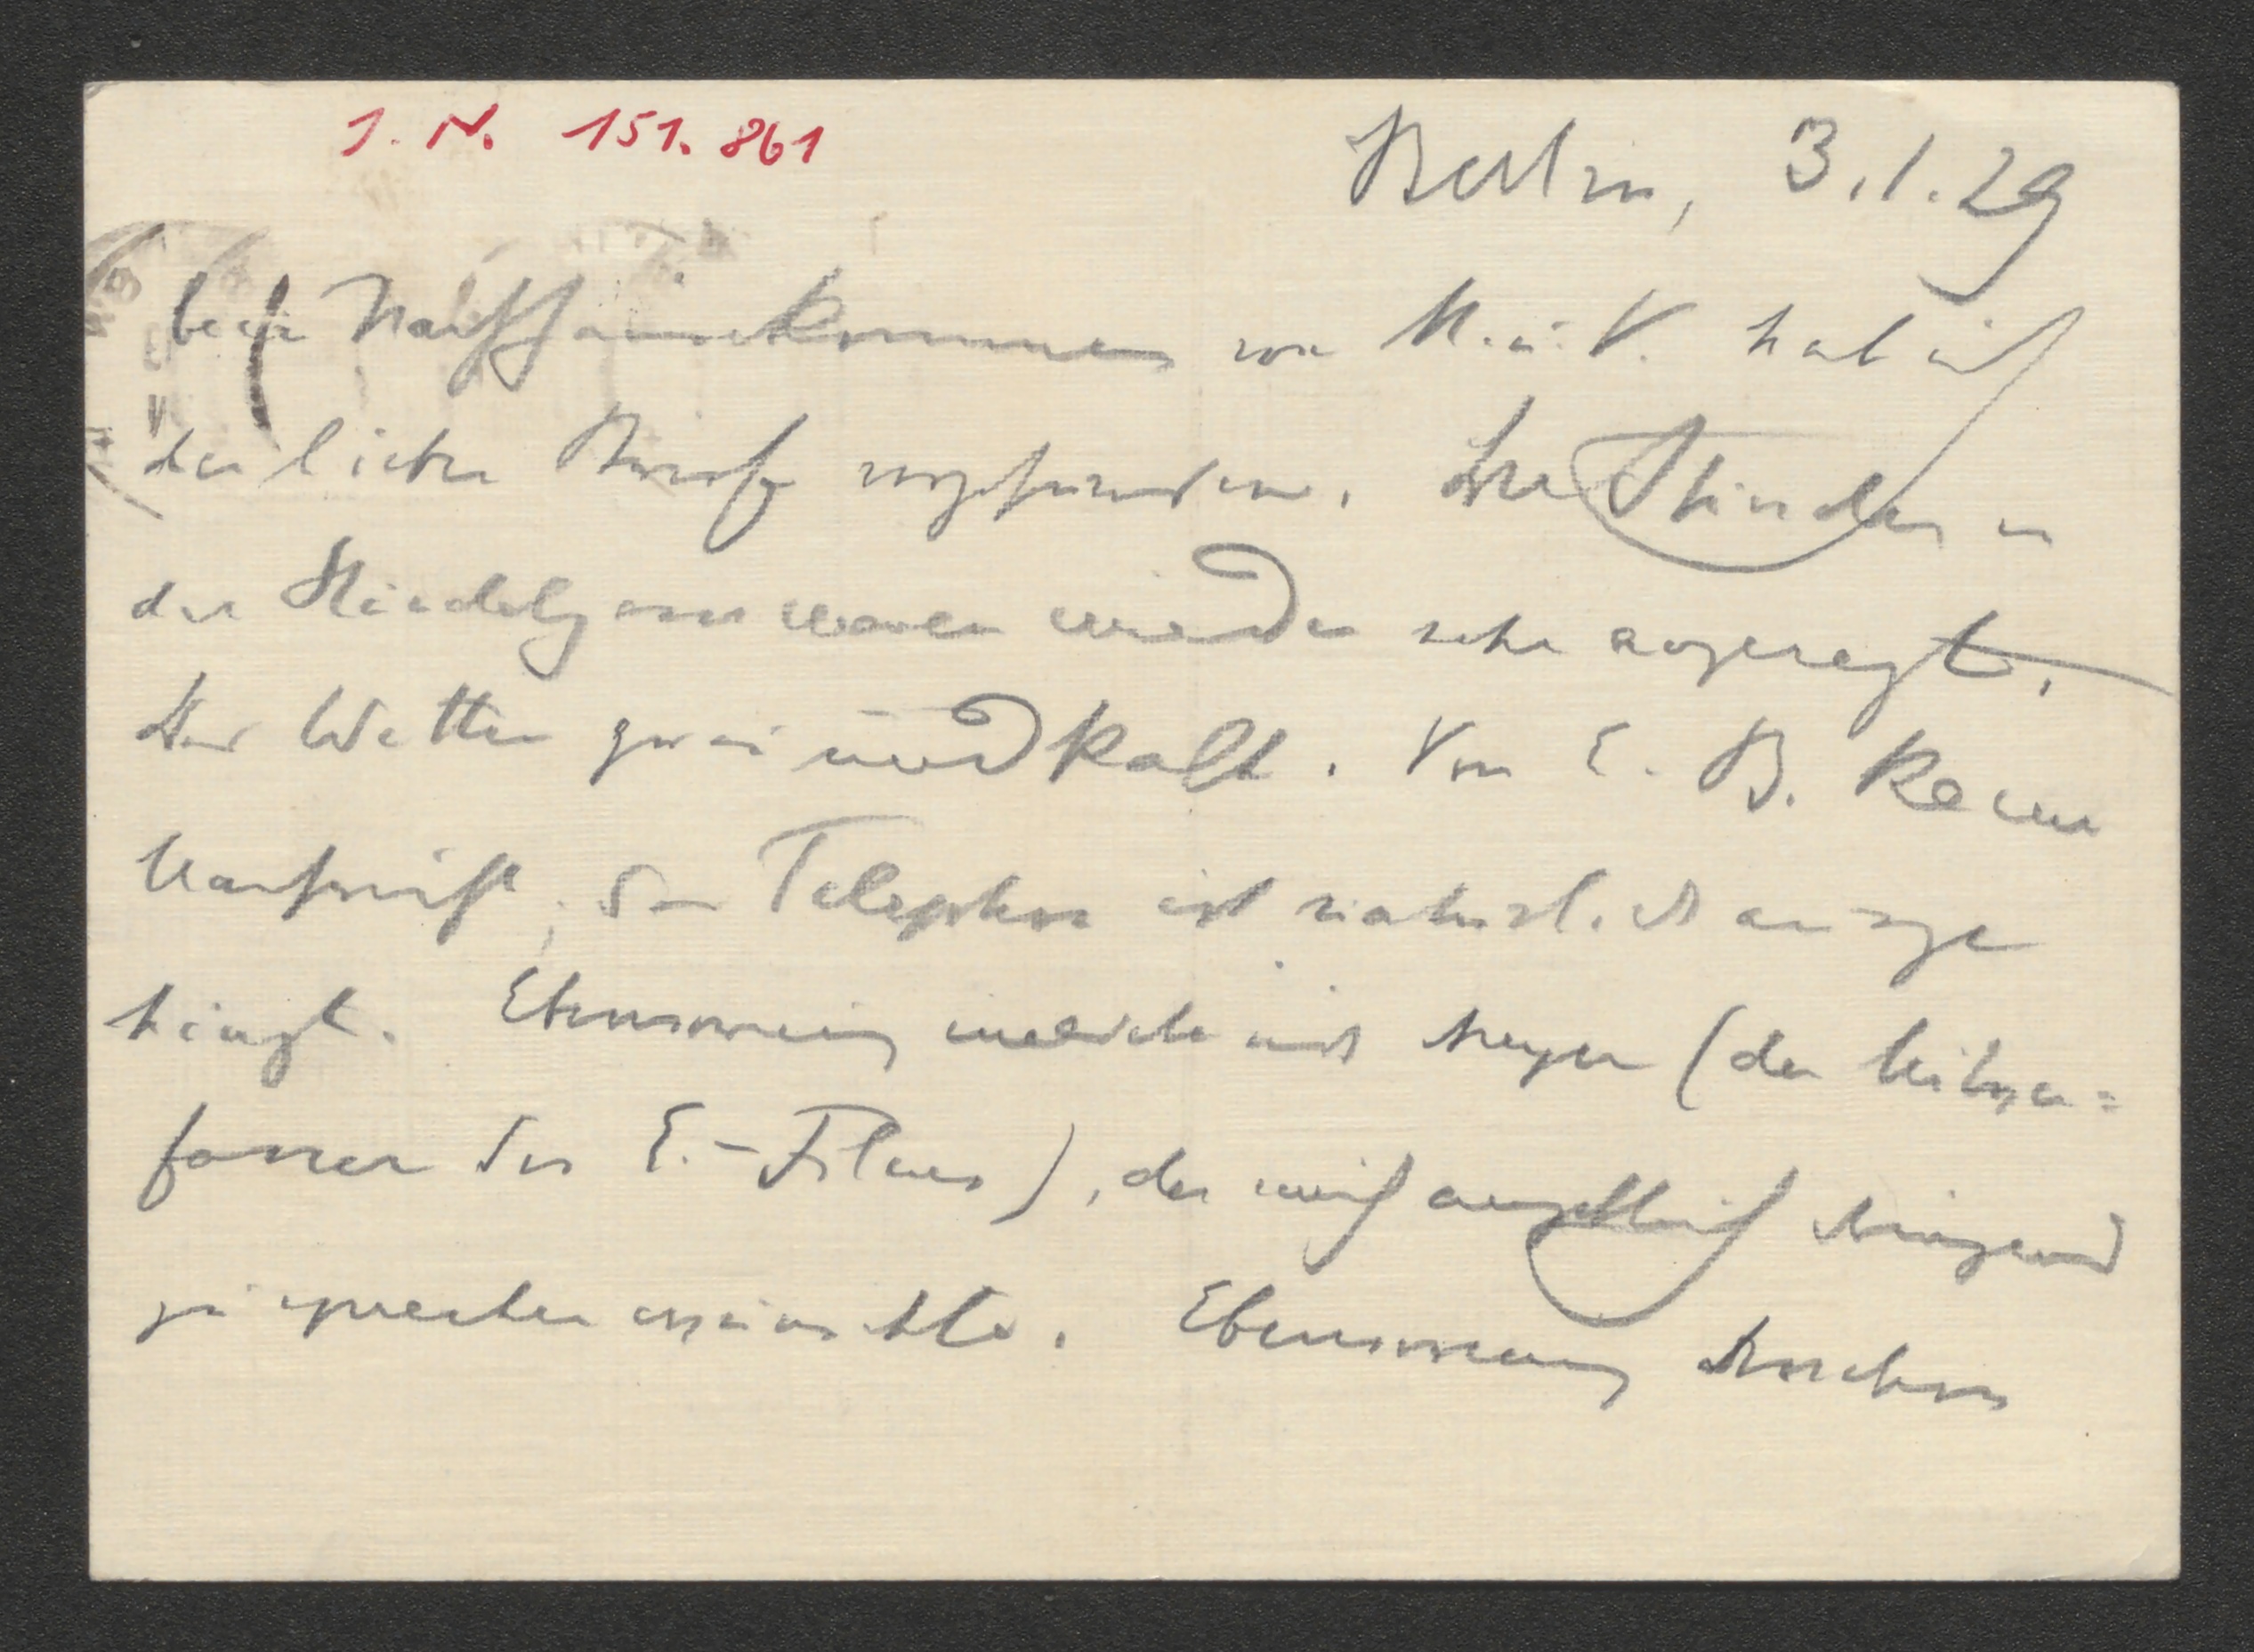 I. N. 151.861
Berlin, 3.1.29
beim Nachhausekommen von M. u. V. hab ich
den lieben Brief vorgefunden. Die Stunden in
der waren wieder sehr angeregt.
Das Wetter grau und kalt. Von E. B. keine
Nachricht, das Telephon ist natürlich ausge
hängt. Ebensowenig meldete sich Meyer (der Mitver=
fasser des E.-Films), der mich angeblich dringend
zu sprechen wünschte. Ebensowenig